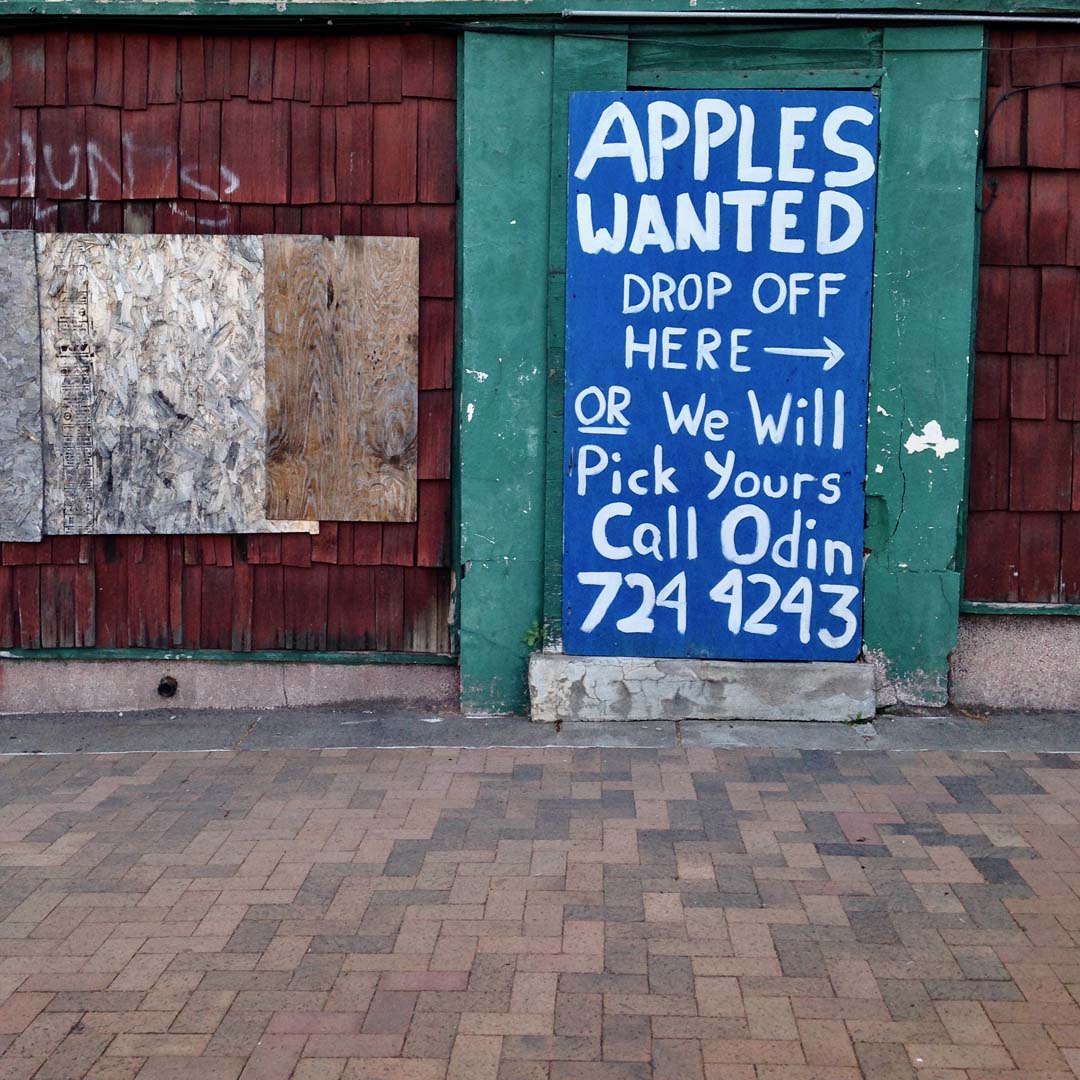 APPLES
WANTED
DROP OFF
HERE →
OR We Will
Pick Yours
Call Odin
724 4243